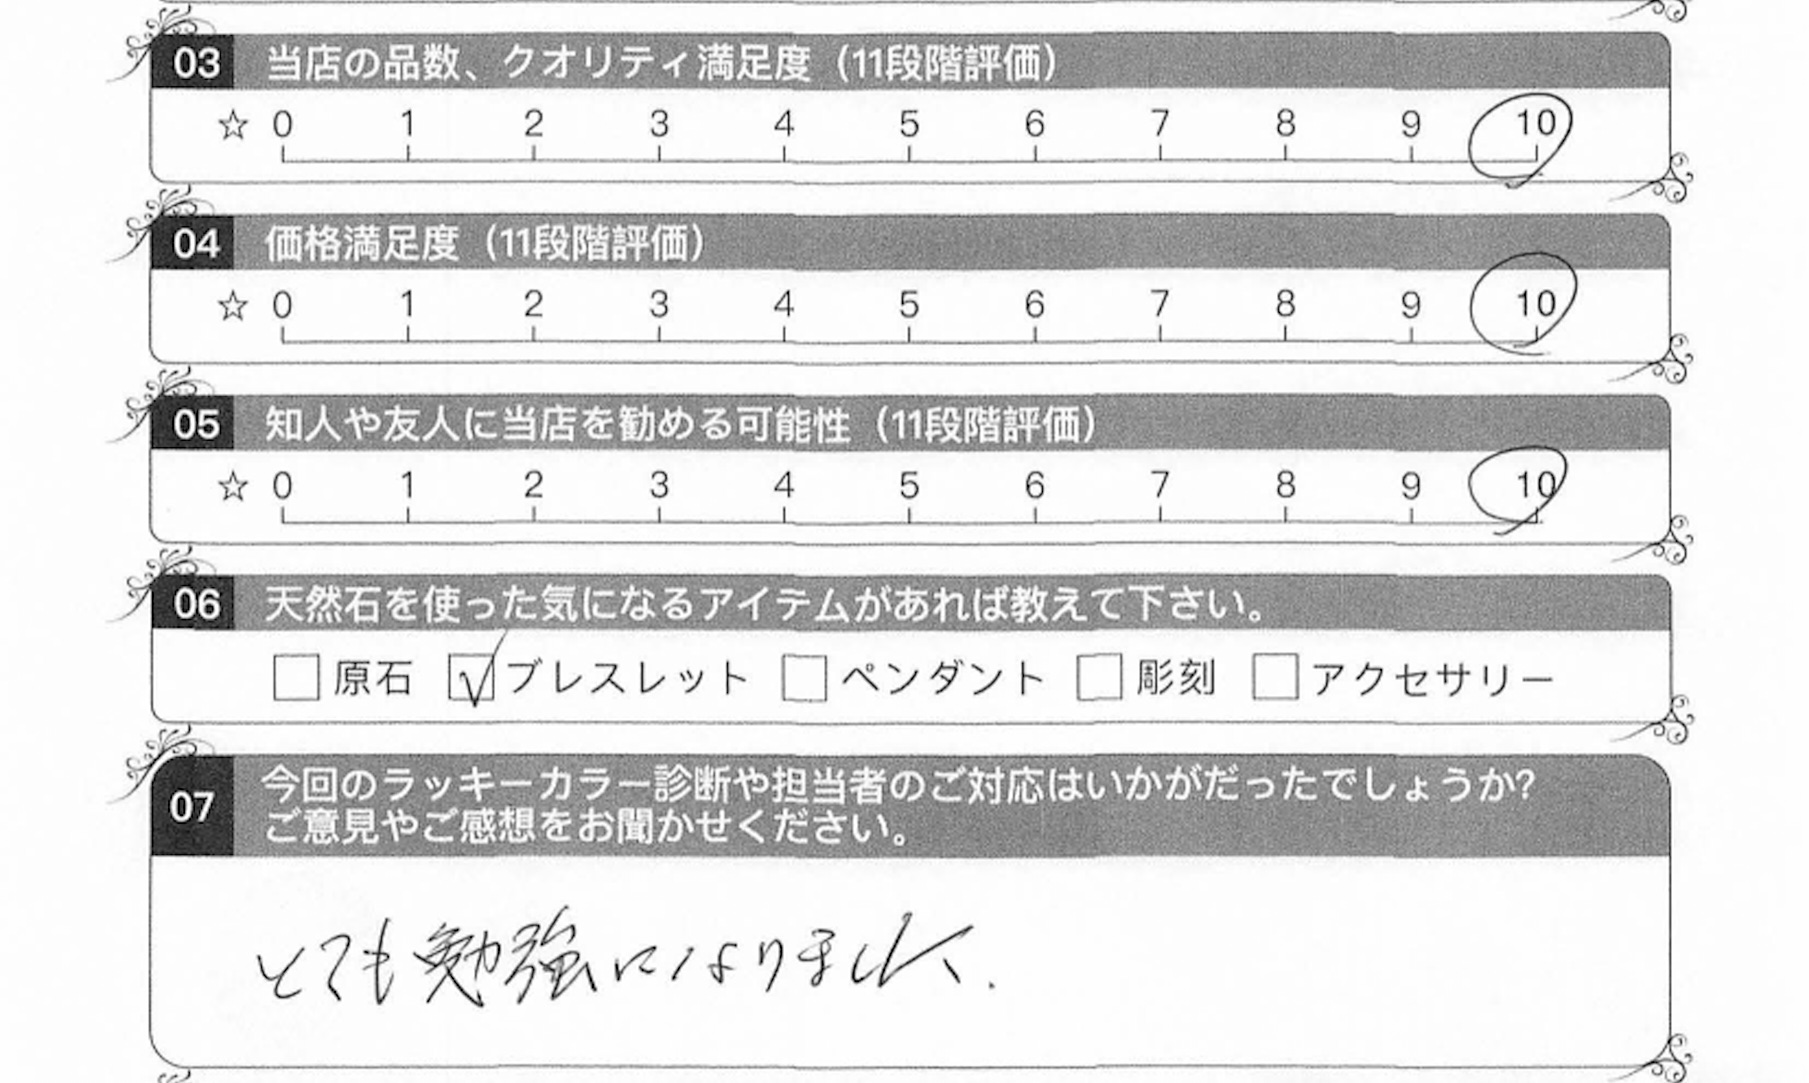 03 当店の品数、クオリティ満足度（11段階評価）
☆ 0 1 2 3 4 5 6 7 8 9 10
04 価格満足度（11段階評価）
☆ 0 1 2 3 4 5 6 7 8 9 10
05 知人や友人に当店を勧める可能性（11段階評価）
☆ 0 1 2 3 4 5 6 7 8 9 10
06 天然石を使った気になるアイテムがあれば教えて下さい。
□ 原石 ☑ ブレスレット □ ペンダント □ 彫刻 □ アクセサリー
07 今回のラッキーカラー診断や担当者のご対応はいかがだったでしょうか?
ご意見やご感想をお聞かせください。
とても勉強になりました.